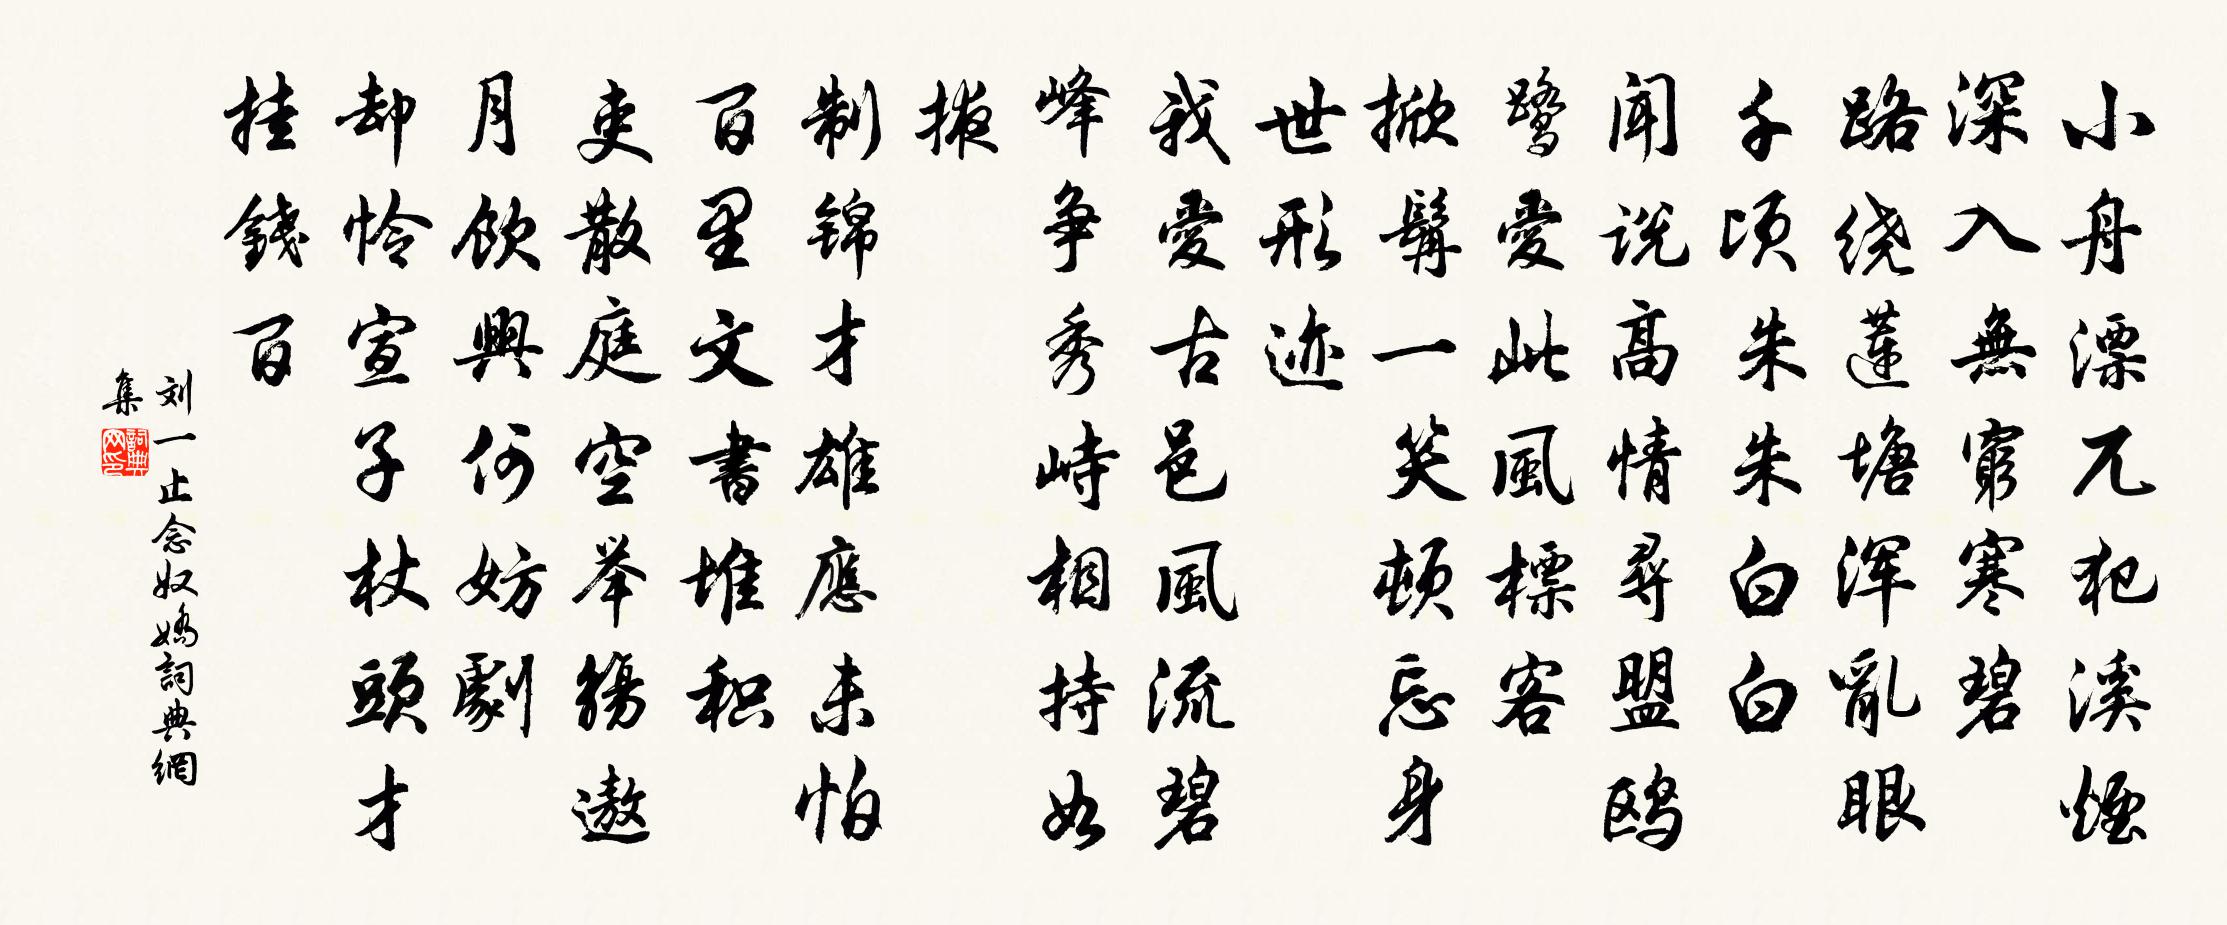 小舟漂兀犯溪煙
深入無窮寒碧
路绕蓮塘浑亂眼
千顷朱朱白白
闻说高情尋盟鸥
鹭愛此風標客
掀髯一笑顿忘身
世形迹
我愛古邑風流碧
峰争秀峙相持如
掖
制锦才雄應未怕
百里文書堆积
吏散庭空举觞遨
月飲興何妨劇
却怜宣子杖頭才
挂錢百
刘一止念奴嬌詞典網
集
詞典网印